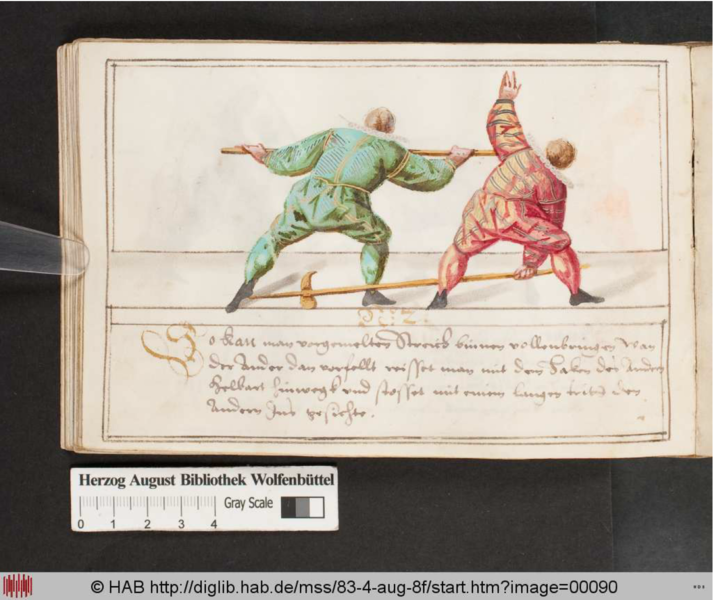 No: 2.
So kan man vorgemelten Streich binnen vollenbringen Wan
der Ander dan vorfellt reisset man mit dem Haken des Andern
Helbart hinwegk vnd stosset mit einem langen tritt den
Andern Ins gesichte.
Herzog August Bibliothek Wolfenbüttel
Gray Scale
0 1 2 3 4
© HAB http://diglib.hab.de/mss/83-4-aug-8f/start.htm?image=00090